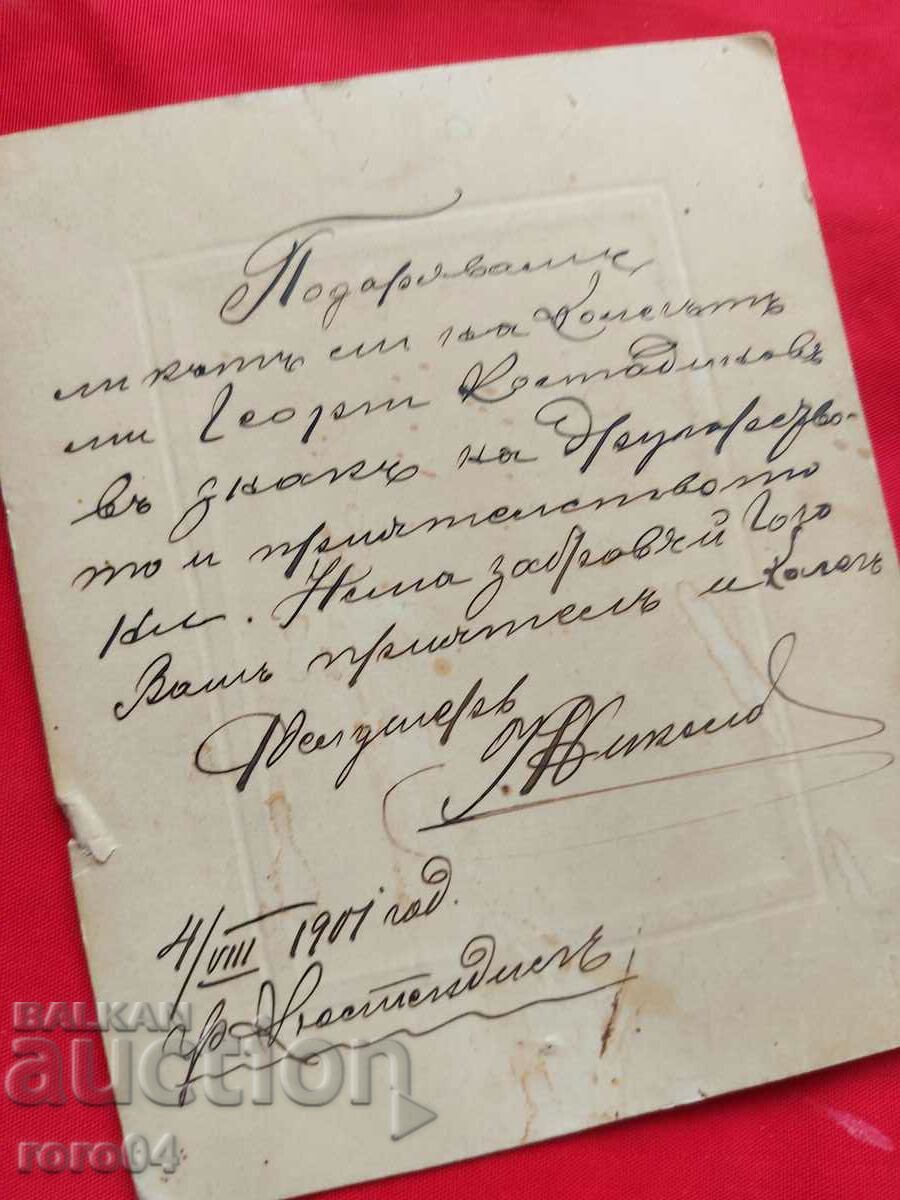 Подарявамъ
ликътъ си на Колегатъ
ми Георги Костадиновъ
въ знакъ на другарство-
то и приятелството
ни. Нема забровяй Гого
Вашъ приятель и Колега
Фелдшеръ
4/VIII 1901 год.
гр. Кюстендилъ
BALKAN
auction
roro04